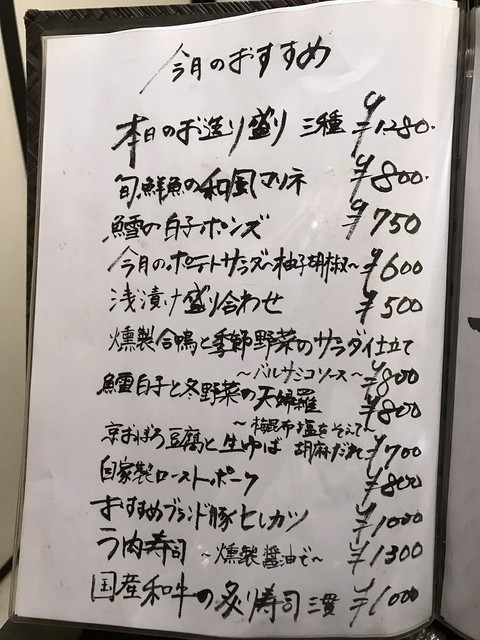 今月のおすすめ
本日のお造り盛り 三種 ¥1280.
旬鮮魚の和風マリネ ¥800.
鱈の白子ポンズ ¥750
今月のポテトサラダ〜柚子胡椒〜 ¥600
浅漬け盛り合わせ ¥500
燻製合鴨と季節野菜のサラダ仕立て
〜バルサミコソース〜 ¥800
鱈白子と冬野菜の天婦羅 ¥800
〜梅昆布塩をそえて〜
京おぼろ豆腐と生ゆば 胡麻だれ ¥700
自家製ローストポーク ¥800
おすすめブランド豚ヒレカツ ¥1000
ラ肉寿司 〜燻製醤油で〜 ¥1300
国産和牛の炙り寿司 三貫 ¥1000